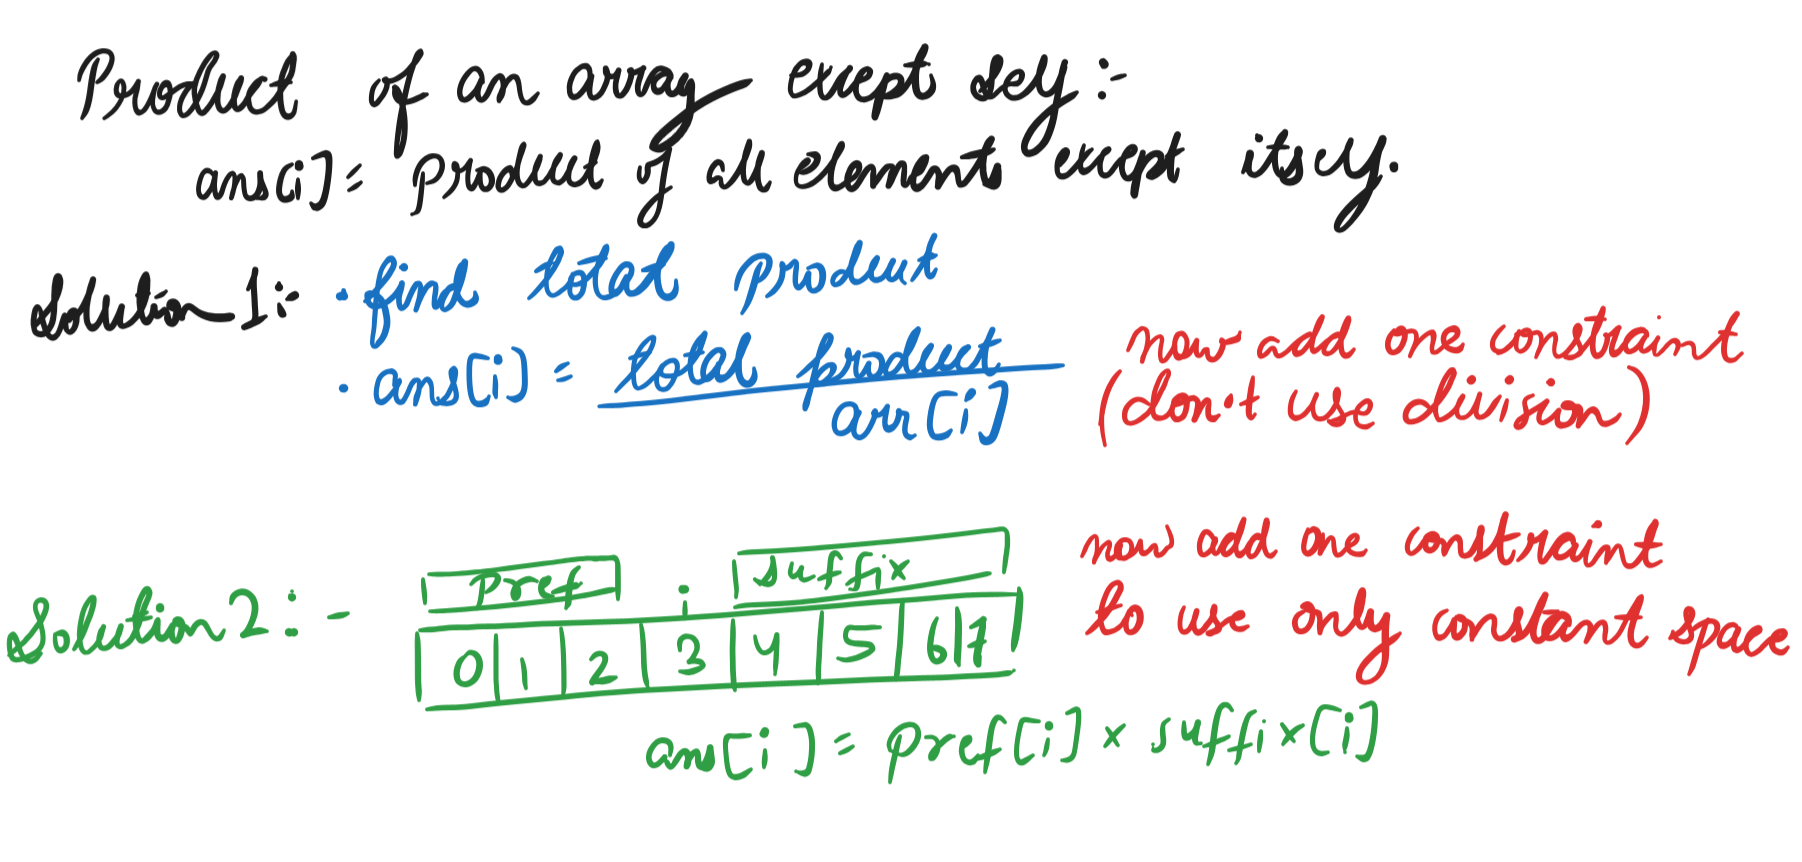 Product of an array except self :-
ans[i] = product of all elements except itself.
Solution 1 :- · find total product
· ans[i] = total product / arr[i]
now add one constraint
(don't use division)
Solution 2 : -
pref i suffix
0 1 2 3 4 5 6 7
ans[i] = pref[i] × suffix[i]
now add one constraint
to use only constant space